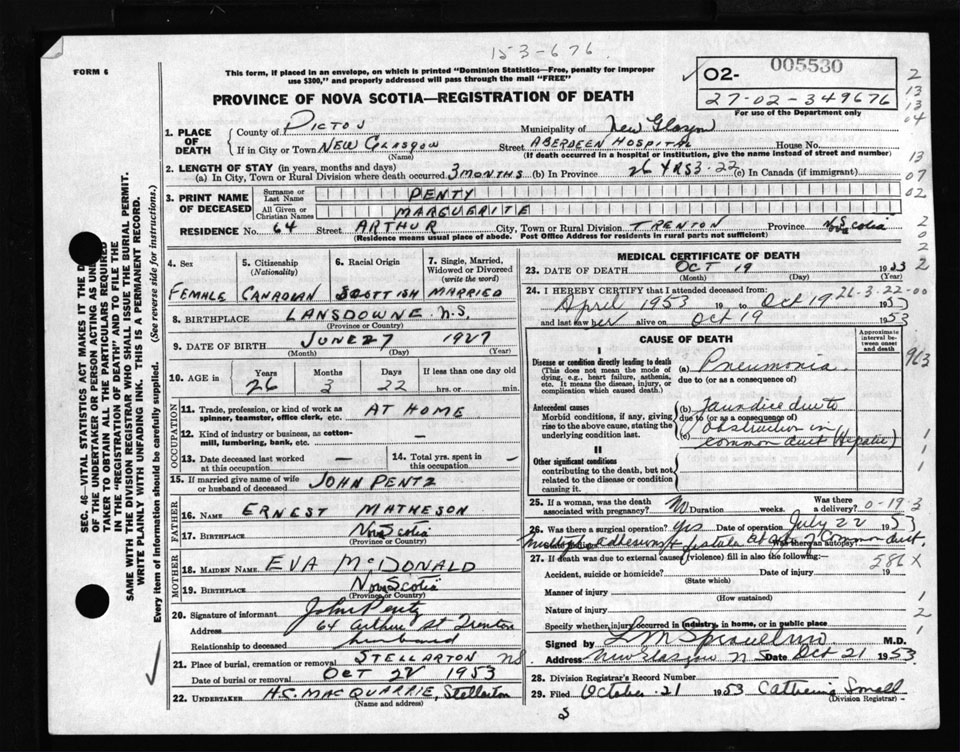 153-676
FORM 6
This form, if placed in an envelope, on which is printed "Dominion Statistics—Free, penalty for improper
use $300," and properly addressed will pass through the mail "FREE"
PROVINCE OF NOVA SCOTIA—REGISTRATION OF DEATH
O2- 005530
27-02-349676
For use of the Department only
2
13
13
04
13
07
02
2
0
2
2
1. PLACE OF DEATH
County of PICTOU Municipality of New Glasgow
If in City or Town NEW GLASGOW Street ABERDEEN HOSPITAL House No.
(Name) (If death occurred in a hospital or institution, give the name instead of street and number)
2. LENGTH OF STAY (in years, months and days)
(a) In City, Town or Rural Division where death occurred 3 MONTHS (b) In Province 26 YRS 3-22 (c) In Canada (if immigrant)
3. PRINT NAME OF DECEASED
Surname or Last Name PENTY
All Given or Christian Names MARGUERITE
RESIDENCE No. 64 Street ARTHUR City, Town or Rural Division TRENTON Province Nova Scotia
(Residence means usual place of abode. Post Office Address for residents in rural parts not sufficient)
SEC. 46—VITAL STATISTICS ACT MAKES IT THE D
OF THE UNDERTAKER OR PERSON ACTING AS UND
TAKER TO OBTAIN ALL THE PARTICULARS REQUIRED
IN THE "REGISTRATION OF DEATH" AND TO FILE THE
SAME WITH THE DIVISION REGISTRAR WHO SHALL ISSUE THE BURIAL PERMIT.
WRITE PLAINLY WITH UNFADING INK. THIS IS A PERMANENT RECORD.
Every item of Information should be carefully supplied. (See reverse side for instructions.)
4. Sex 5. Citizenship (Nationality) 6. Racial Origin 7. Single, Married, Widowed or Divorced (write the word)
FEMALE CANADIAN SCOTTISH MARRIED
8. BIRTHPLACE LANSDOWNE N.S.
(Province or Country)
9. DATE OF BIRTH JUNE 27 1927
(Month) (Day) (Year)
10. AGE in Years Months Days If less than one day old
26 3 22 hrs. or min.
OCCUPATION
11. Trade, profession, or kind of work as spinner, teamster, office clerk, etc. AT HOME
12. Kind of industry or business, as cotton-mill, lumbering, bank, etc. —
13. Date deceased last worked at this occupation — 14. Total yrs. spent in this occupation —
15. If married give name of wife or husband of deceased JOHN PENTZ
FATHER
16. NAME ERNEST MATHESON
17. BIRTHPLACE Nova Scotia
(Province or Country)
MOTHER
18. MAIDEN NAME EVA McDONALD
19. BIRTHPLACE Nova Scotia
(Province or Country)
20. Signature of informant John Pentz
Address 64 Arthur St Trenton
Relationship to deceased husband
21. Place of burial, cremation or removal STELLARTON NS
Date of burial or removal OCT 22 1953
22. UNDERTAKER H.C. MACQUARRIE, Stellarton
(Name and address)
MEDICAL CERTIFICATE OF DEATH
23. DATE OF DEATH OCT 19 1953
(Month) (Day) (Year)
24. I HEREBY CERTIFY that I attended deceased from: 26-3-22-00
April 1953 19 to Oct 19 1953
and last saw her alive on Oct 19 1953
CAUSE OF DEATH
Approximate interval between onset and death
I
Disease or condition directly leading to death
(This does not mean the mode of dying, e.g., heart failure, asthenia, etc. It means the disease, injury, or complication which caused death.)
(a) Pneumonia
due to (or as a consequence of)
Antecedent causes
Morbid conditions, if any, giving rise to the above cause, stating the underlying condition last.
(b) Jaundice due to
due to (or as a consequence of)
(c) Obstruction in
common duct (Hepatic)
II
Other significant conditions
contributing to the death, but not related to the disease or condition causing it.
963
1
1
25. If a woman, was the death associated with pregnancy? No Duration weeks. Was there a delivery? 0-19-3
26. Was there a surgical operation? yes Date of operation July 22 1953
Multiple adhesions & fistula Common duct.
Was there an autopsy?
27. If death was due to external causes (violence) fill in also the following:— 586 X
Accident, suicide or homicide? Date of injury 19
(State which)
Manner of injury 1
(How sustained)
Nature of injury 2
Specify whether injury occurred in industry, in home, or in public place 1
Signed by M.D.
Address New Glasgow N S Date Oct 21 1953
28. Division Registrar's Record Number
29. Filed October 21 1953 Catherine Small
(Division Registrar)
S